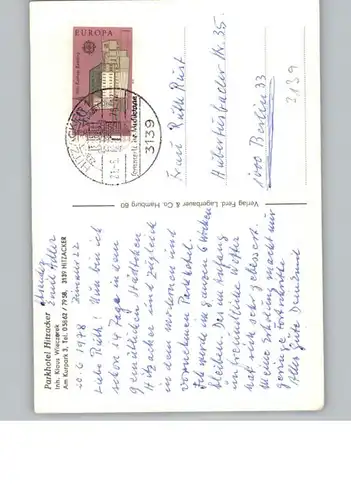 Parkhotel Hitzacker
Inh. Klaus Wieczorek
Am Kurpark 3, Tel. 05862 / 7958, 3139 HITZACKER
Absender
Zimmer 22
20.6.1978
Liebe Ruth! Nun bin ich
schon 14 Tage in dem
gemütlichen Städtchen
Hitzacker und zugleich
in dem modernen und
vornehmen Parkhotel.
Ich werde im ganzen 6 Wochen
bleiben. Das im Anfang
unfreundliche Wetter
hat sich sehr gebessert.
Meine Erholung macht nur
geringe Fortschritte
Alles Gute
Verlag Ferd. Lagerbauer & Co. Hamburg 60
EUROPA
HITZACKER
3139
Frau Ruth Rust
Hubertusbader Str. 35
1000 Berlin 33
3139